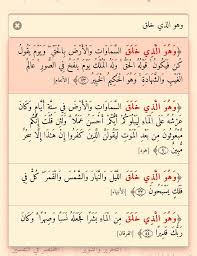 وهو الذي خلق
وَهُوَ الَّذِي خَلَقَ السَّمَاوَاتِ وَالْأَرْضَ بِالْحَقِّ ۖ وَيَوْمَ يَقُولُ
كُن فَيَكُونُ ۚ قَوْلُهُ الْحَقُّ ۚ وَلَهُ الْمُلْكُ يَوْمَ يُنفَخُ فِي الصُّورِ ۚ عَالِمُ
الْغَيْبِ وَالشَّهَادَةِ ۚ وَهُوَ الْحَكِيمُ الْخَبِيرُ ﴿٧٣﴾ [الأنعام]
وَهُوَ الَّذِي خَلَقَ السَّمَاوَاتِ وَالْأَرْضَ فِي سِتَّةِ أَيَّامٍ وَكَانَ
عَرْشُهُ عَلَى الْمَاءِ لِيَبْلُوَكُمْ أَيُّكُمْ أَحْسَنُ عَمَلًا ۗ وَلَئِن قُلْتَ إِنَّكُم
مَّبْعُوثُونَ مِن بَعْدِ الْمَوْتِ لَيَقُولَنَّ الَّذِينَ كَفَرُوا إِنْ هَٰذَا إِلَّا سِحْرٌ
مُّبِينٌ ﴿٧﴾ [هود]
وَهُوَ الَّذِي خَلَقَ اللَّيْلَ وَالنَّهَارَ وَالشَّمْسَ وَالْقَمَرَ ۖ كُلٌّ فِي
فَلَكٍ يَسْبَحُونَ ﴿٣٣﴾ [الأنبياء]
وَهُوَ الَّذِي خَلَقَ مِنَ الْمَاءِ بَشَرًا فَجَعَلَهُ نَسَبًا وَصِهْرًا ۗ وَكَانَ
رَبُّكَ قَدِيرًا ﴿٥٤﴾ [الفرقان]